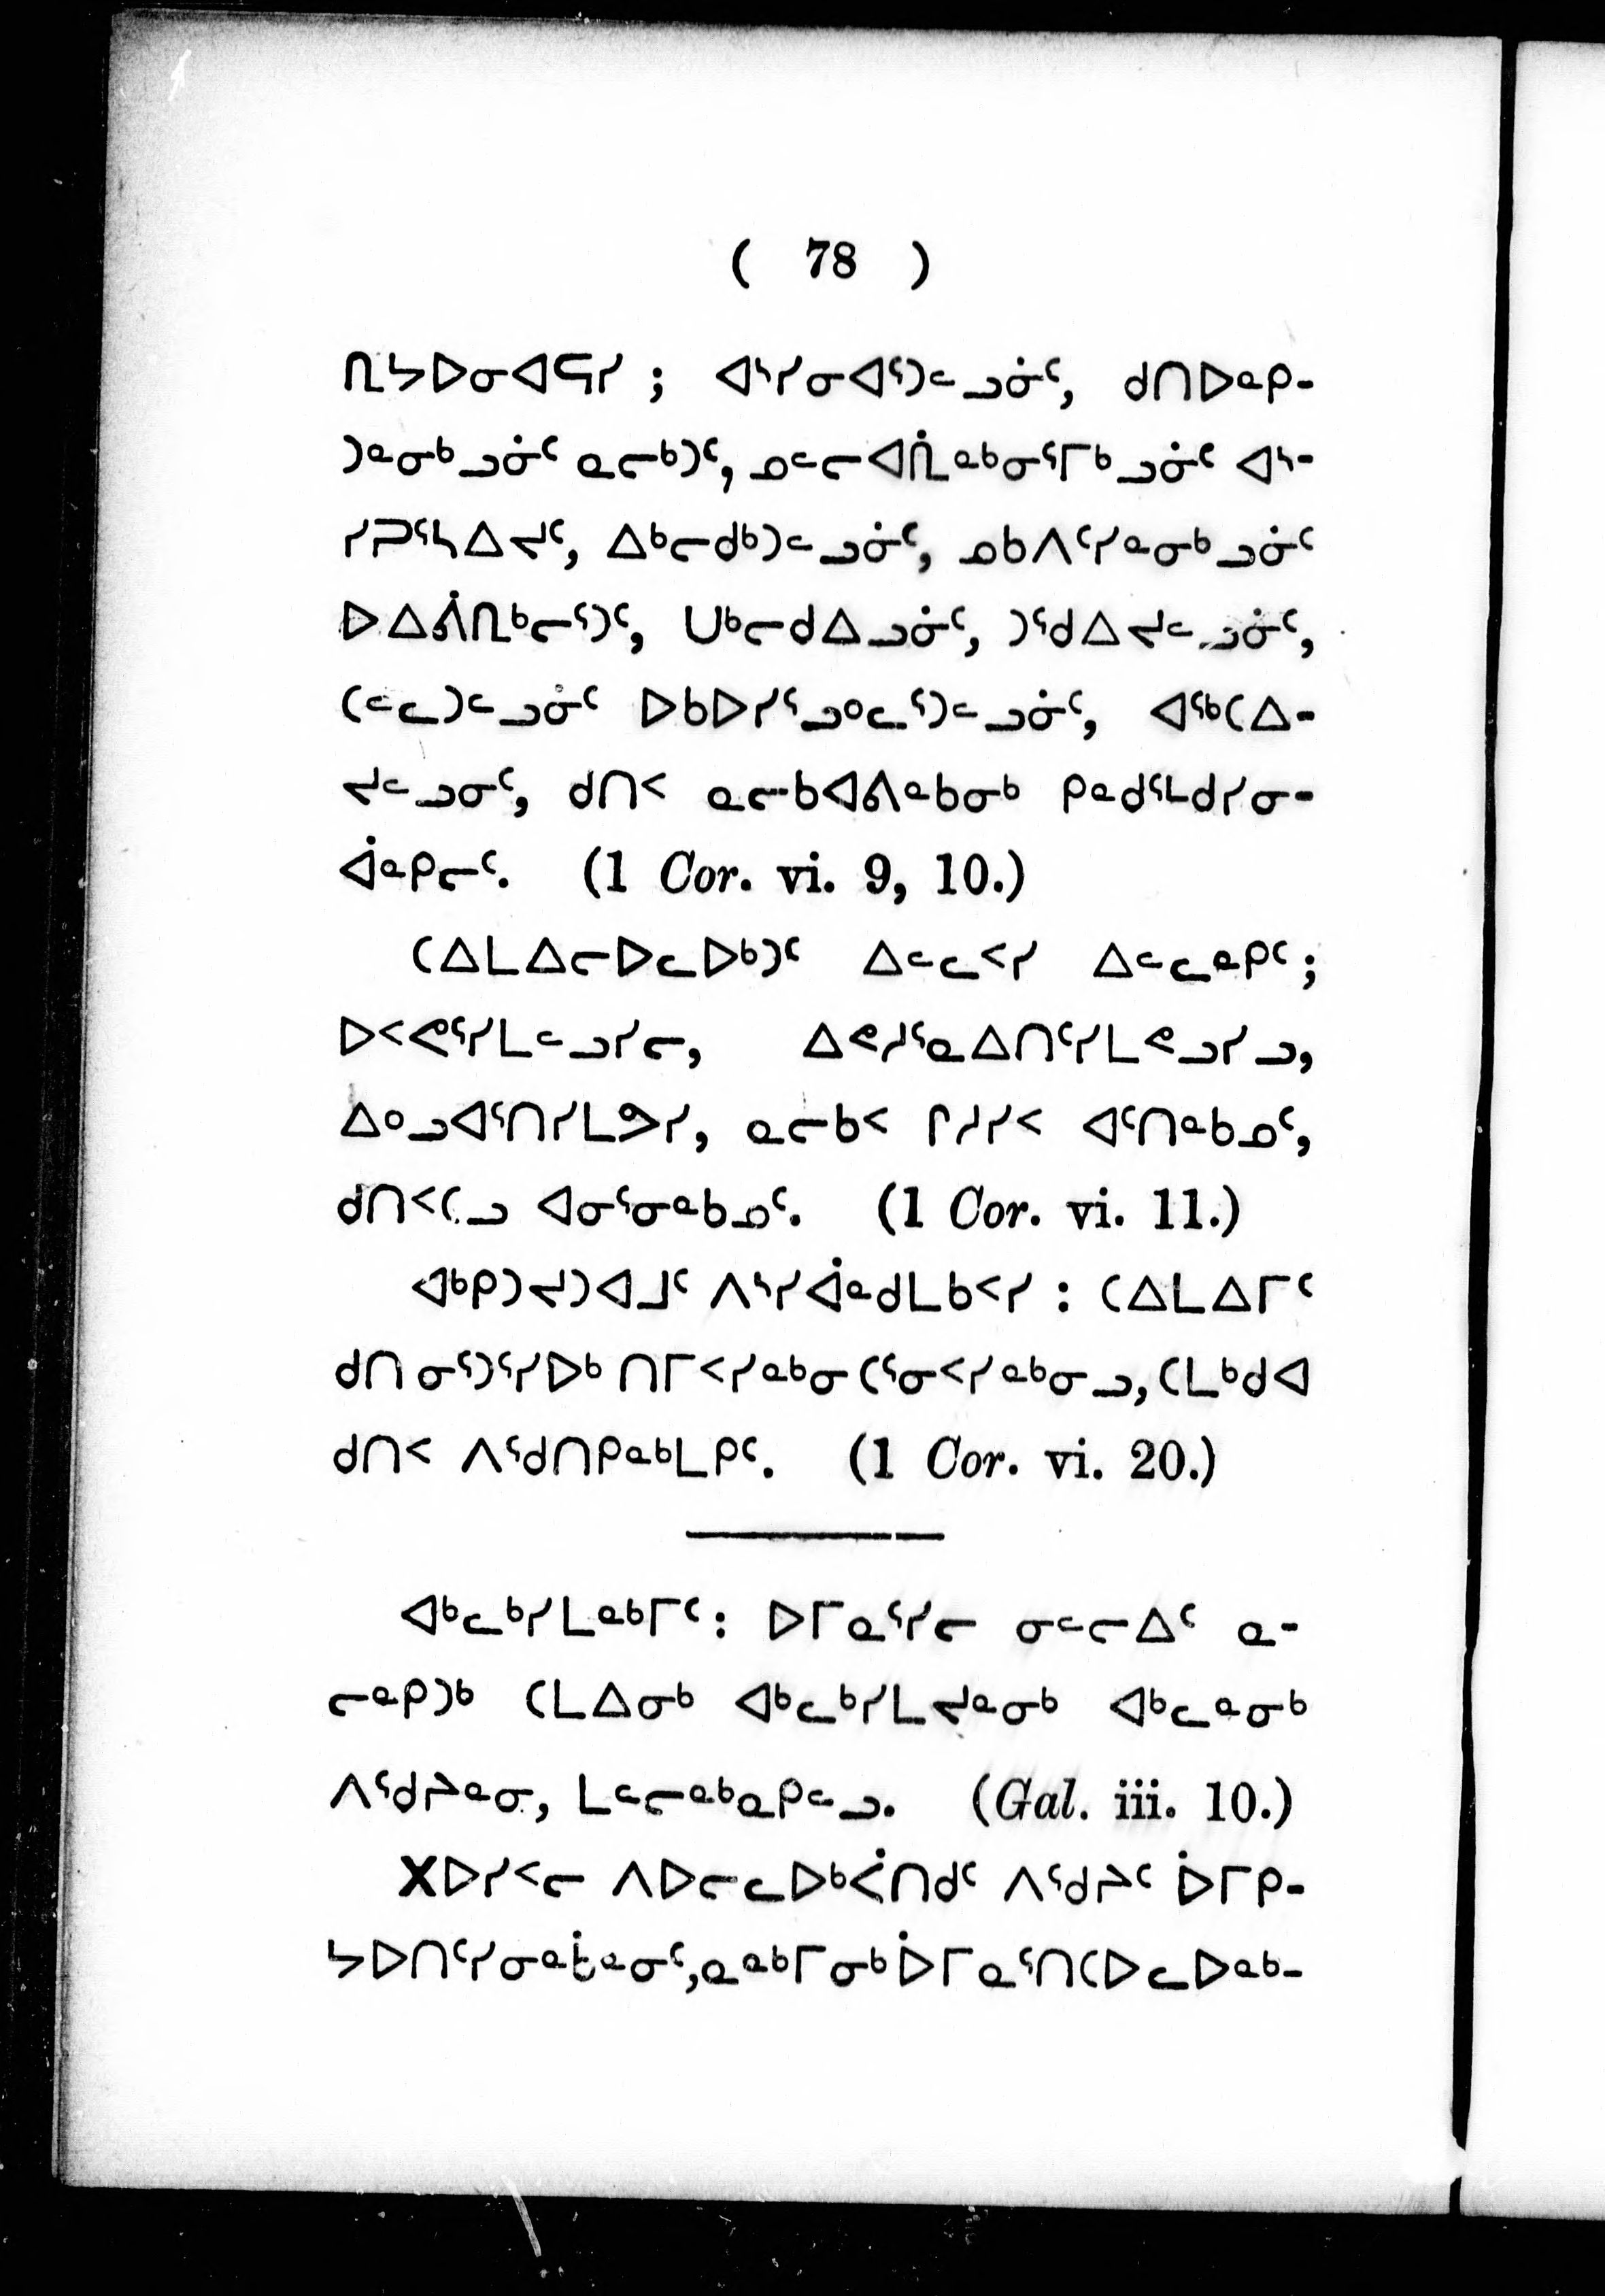 ( 78 )
ᕇᔭᐅᓂᐊᕋᓯ ; ᐊᔅᓯᓂᐊᕐᑐᓪᓗᓃᑦ, ᑯᑎᐅᓇᑭ-
ᑐᓐᓂᒃᓗᓃᑦ ᓇᓕᒃᑐᑦ, ᓄᓪᓕᐊᕇᓐᒃᓂᕐᒥᒃᓗᓃᑦ ᐊᔅ-
ᓯᑐᕐᓴᐃᔪᑦ, ᐃᒃᓕᑯᒃᑐᓪᓗᓃᑦ, ᓄᑲᐱᑦᓯᓐᓂᒃᓗᓃᑦ
ᐅᐃᕖᕇᒃᓕᕐᑐᑦ, ᑌᒃᓕᑯᐃᓗᓃᑦ, ᑐᕐᑯᐃᔪᓪᓗᓃᑦ,
ᑕᓪᓚᑐᓪᓗᓃᑦ ᐅᑲᐅᓯᕐᓗᐤᓚᕐᑐᓪᓗᓃᑦ, ᐊᖅᑕᐃ-
ᔪᓪᓗᓂᑦ, ᑯᑎᑉ ᓇᓕᑲᐊᕕᓐᑲᓂᒃ ᑭᓇᑯᕐᒪᑯᓯᓂ-
ᐋᓐᑭᓕᑦ. (1 Cor. vi. 9, 10.)
ᑕᐃᒪᐃᓕᐅᓚᐅᒃᑐᑦ ᐃᓪᓚᑉᓯ ᐃᓪᓚᓐᑭᑦ ;
ᐅᑉᕙᕐᓯᒪᓪᓗᓯᓕ, ᐃᕝᔨᕐᓇᐃᑎᑦᓯᒪᕝᓗᓯᓗ,
ᐃᐤᓗᐊᕐᑎᓯᒪᕗᓯ, ᓇᓕᑲᑉ ᒋᓱᓯᑉ ᐊᑦᑎᓐᑲᓄᑦ,
ᑯᑎᑉᑕᓗ ᐊᓂᕐᓂᓐᑲᓄᑦ. (1 Cor. vi. 11.)
ᐊᒃᑭᑐᔪᑐᐊᒧᑦ ᐱᔅᓯᐋᓐᑯᒪᑲᑉᓯ : ᑕᐃᒪᐃᒥᑦ
ᑯᑎ ᓂᕐᑐᕐᓯᐅᒃ ᑎᒥᑉᓯᓐᒃᓂ ᑕᕐᓂᑉᓯᓐᒃᓂᓗ, ᑕᒪᒃᑯᐊ
ᑯᑎᑉ ᐱᕐᑯᑎᑭᓐᒃᒪᑭᑦ. (1 Cor. vi. 20.)
ᐊᒃᓚᒃᓯᒪᓐᒃᒥᑦ : ᐅᒥᓇᕐᓯᓕ ᓂᓪᓕᐃᑦ ᓇ-
ᓕᓐᑭᑐᒃ ᑕᒪᐃᓂᒃ ᐊᒃᓚᒃᓯᒪᔪᓐᓂᒃ ᐊᒃᓚᓐᓂᒃ
ᐱᕐᑯᔨᓐᓂ, ᒪᓪᓕᓐᒃᓇᑭᓪᓗ. (Gal. iii. 10.)
ᕽᐅᓯᑉᓕ ᐱᐅᓕᓚᐅᒃᐹᑎᑯᑦ ᐱᕐᑯᔨᑦ ᐆᒥᑭ-
ᔭᐅᑎᑦᓯᓂᓐᖔᓐᓂᑦ, ᓇᓐᒃᒥᓂᒃ ᐆᒥᓇᕐᑎᑕᐅᓚᐅᓐᒃ-